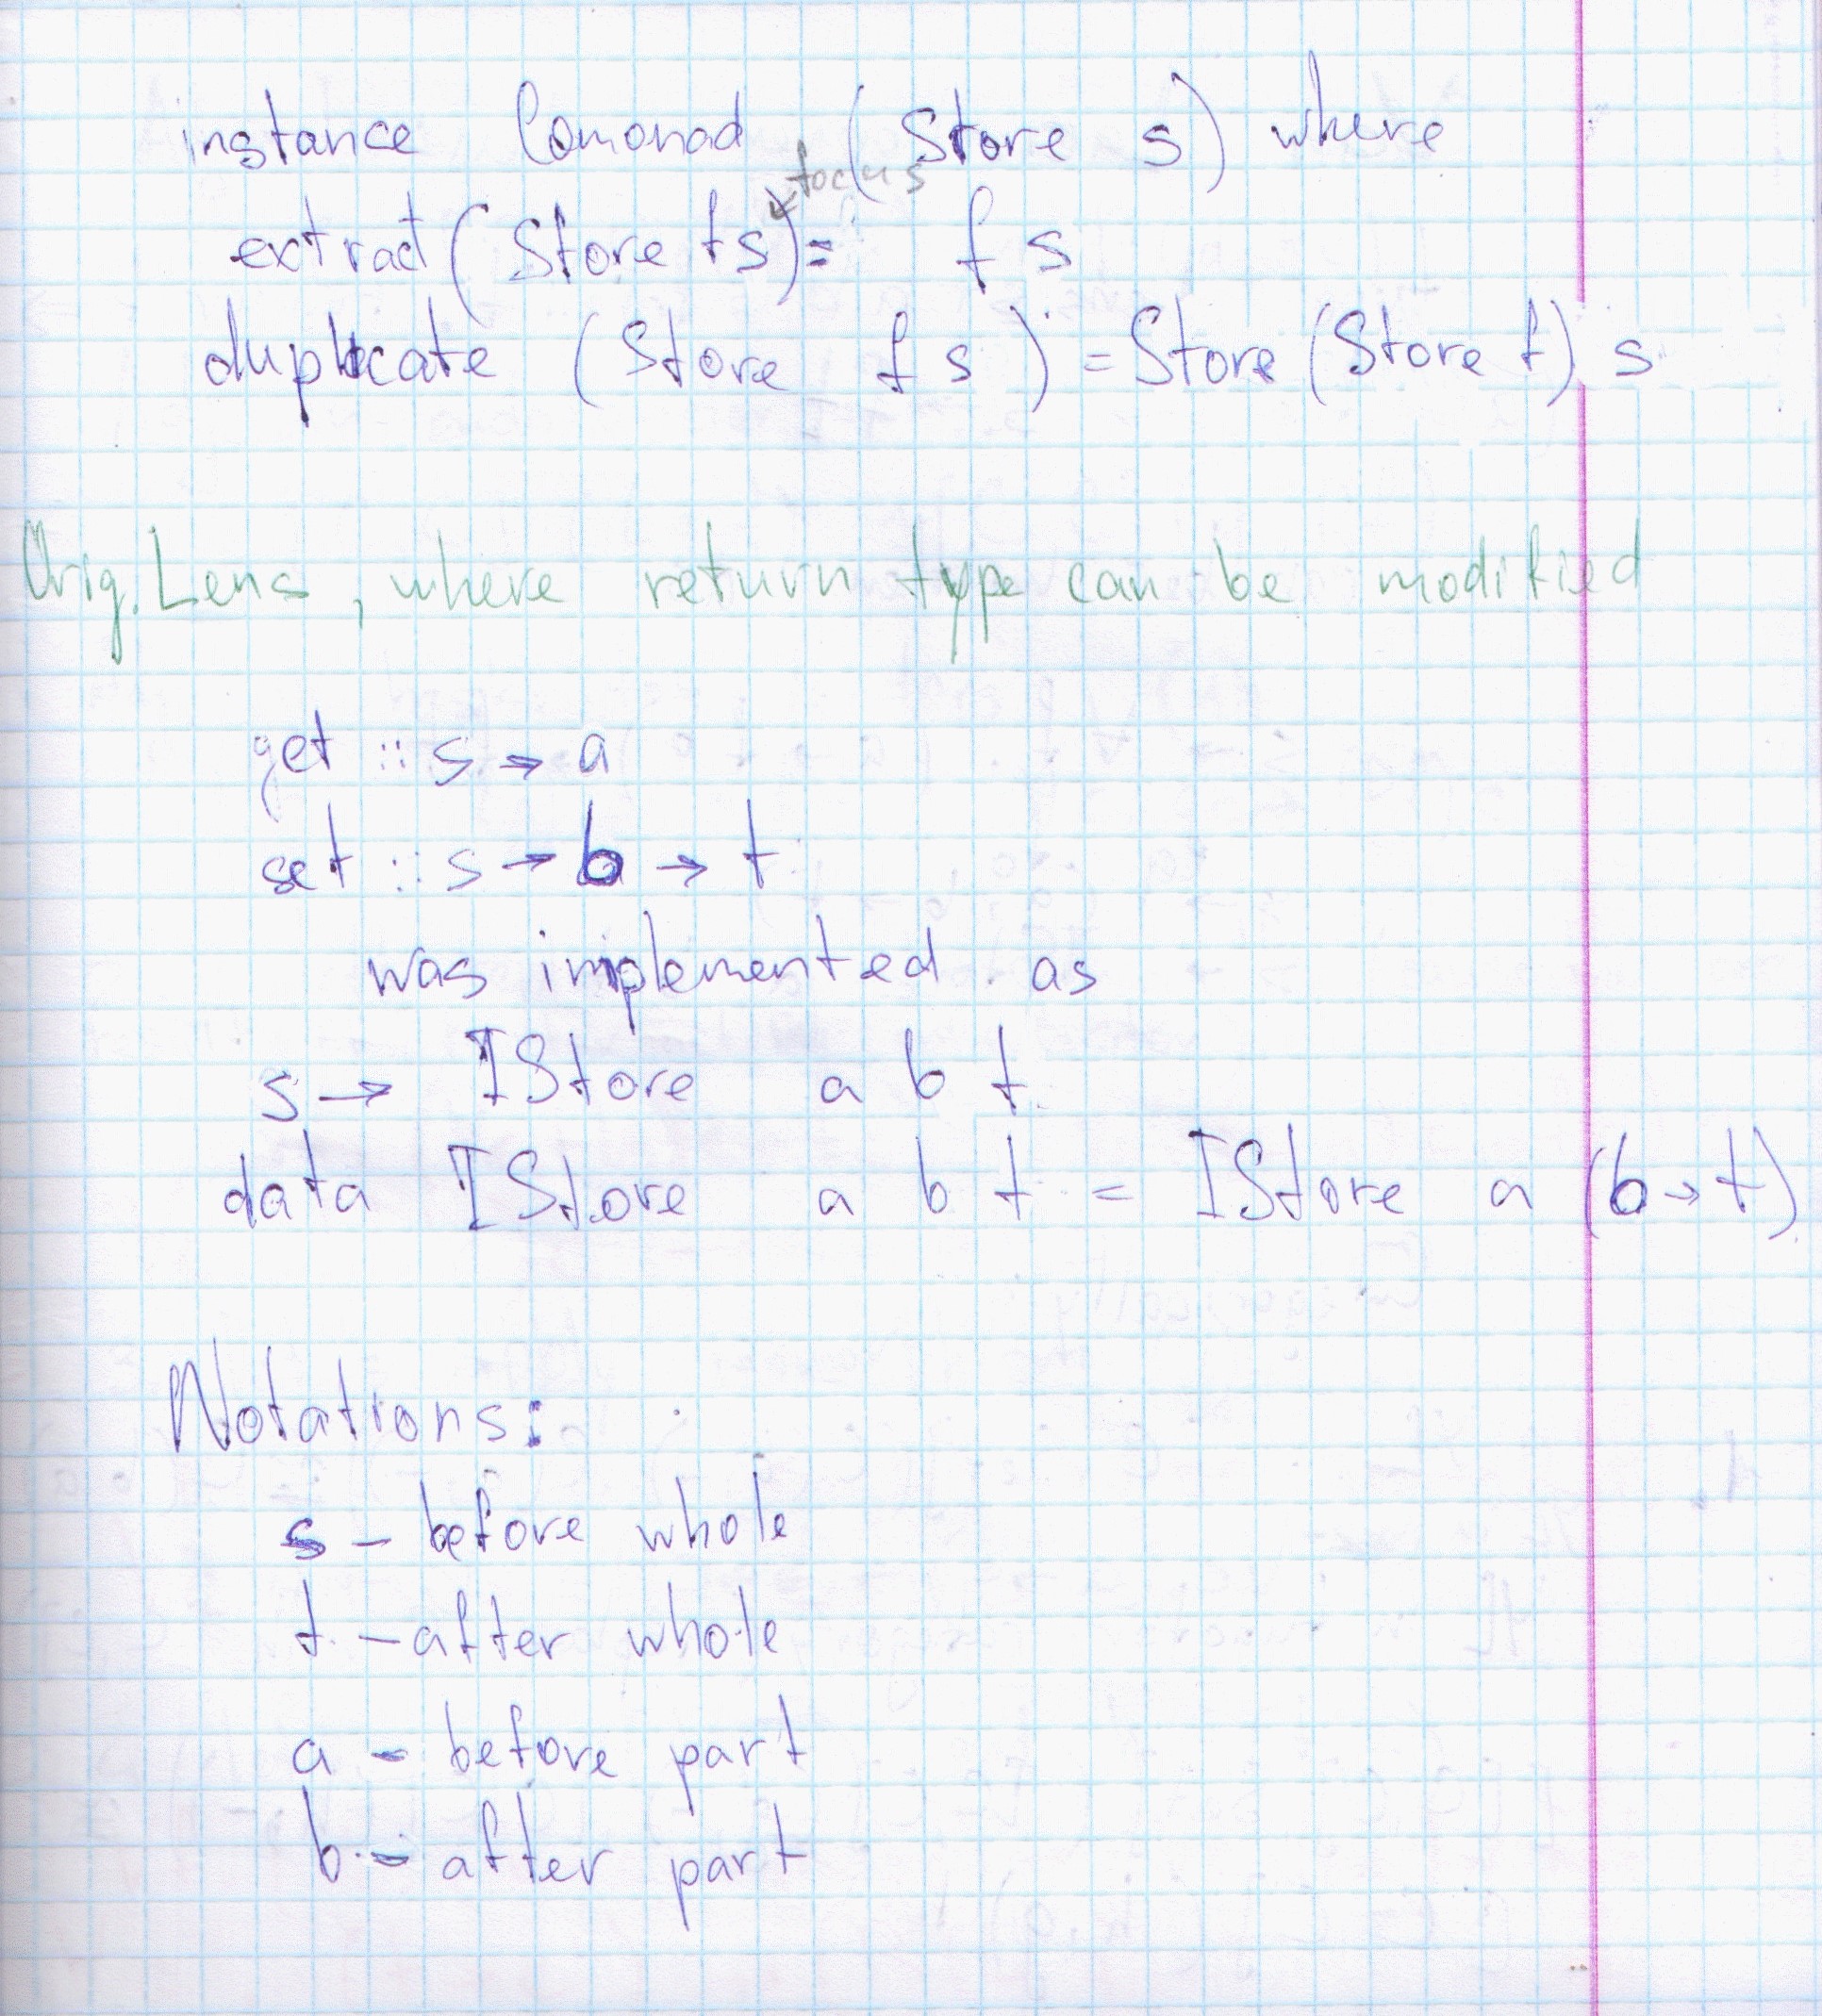 instance Comonad (Store s) where
focus
extract (Store f s) = f s
duplicate (Store f s) = Store (Store f) s
Orig. Lens, where return type can be modified
get :: s → a
set :: s → b → t
was implemented as
s → IStore a b t
data IStore a b t = IStore a (b → t)
Notations:
s – before whole
t – after whole
a – before part
b – after part